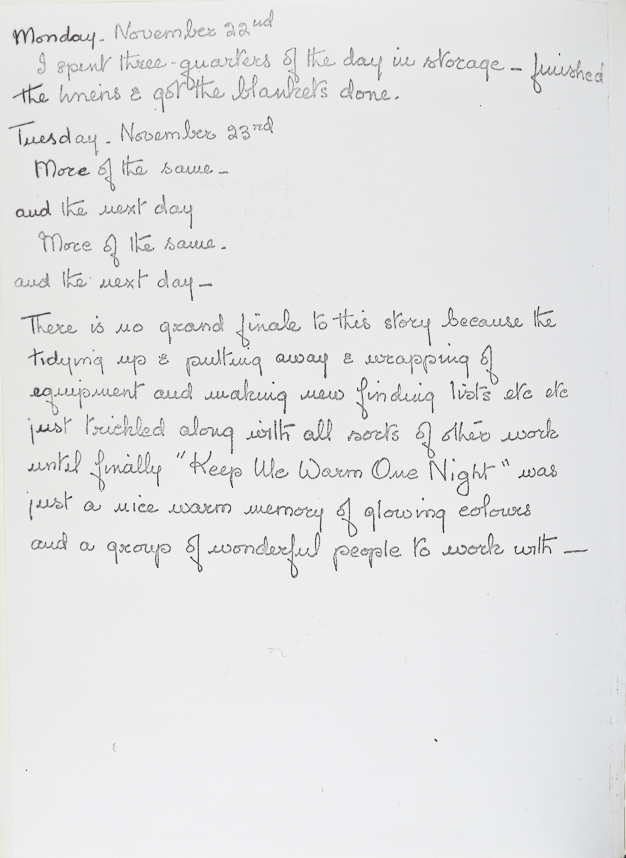 Monday - November 22nd
I spent three-quarters of the day in storage - finished
the linens & got the blankets done.
Tuesday - November 23rd
More of the same -
and the next day
More of the same.
and the next day -
There is no grand finale to this story because the
tidying up & putting away & wrapping of
equipment and making new finding lists etc etc
just trickled along with all sorts of other work
until finally "Keep Me Warm One Night" was
just a nice warm memory of glowing colours
and a group of wonderful people to work with —